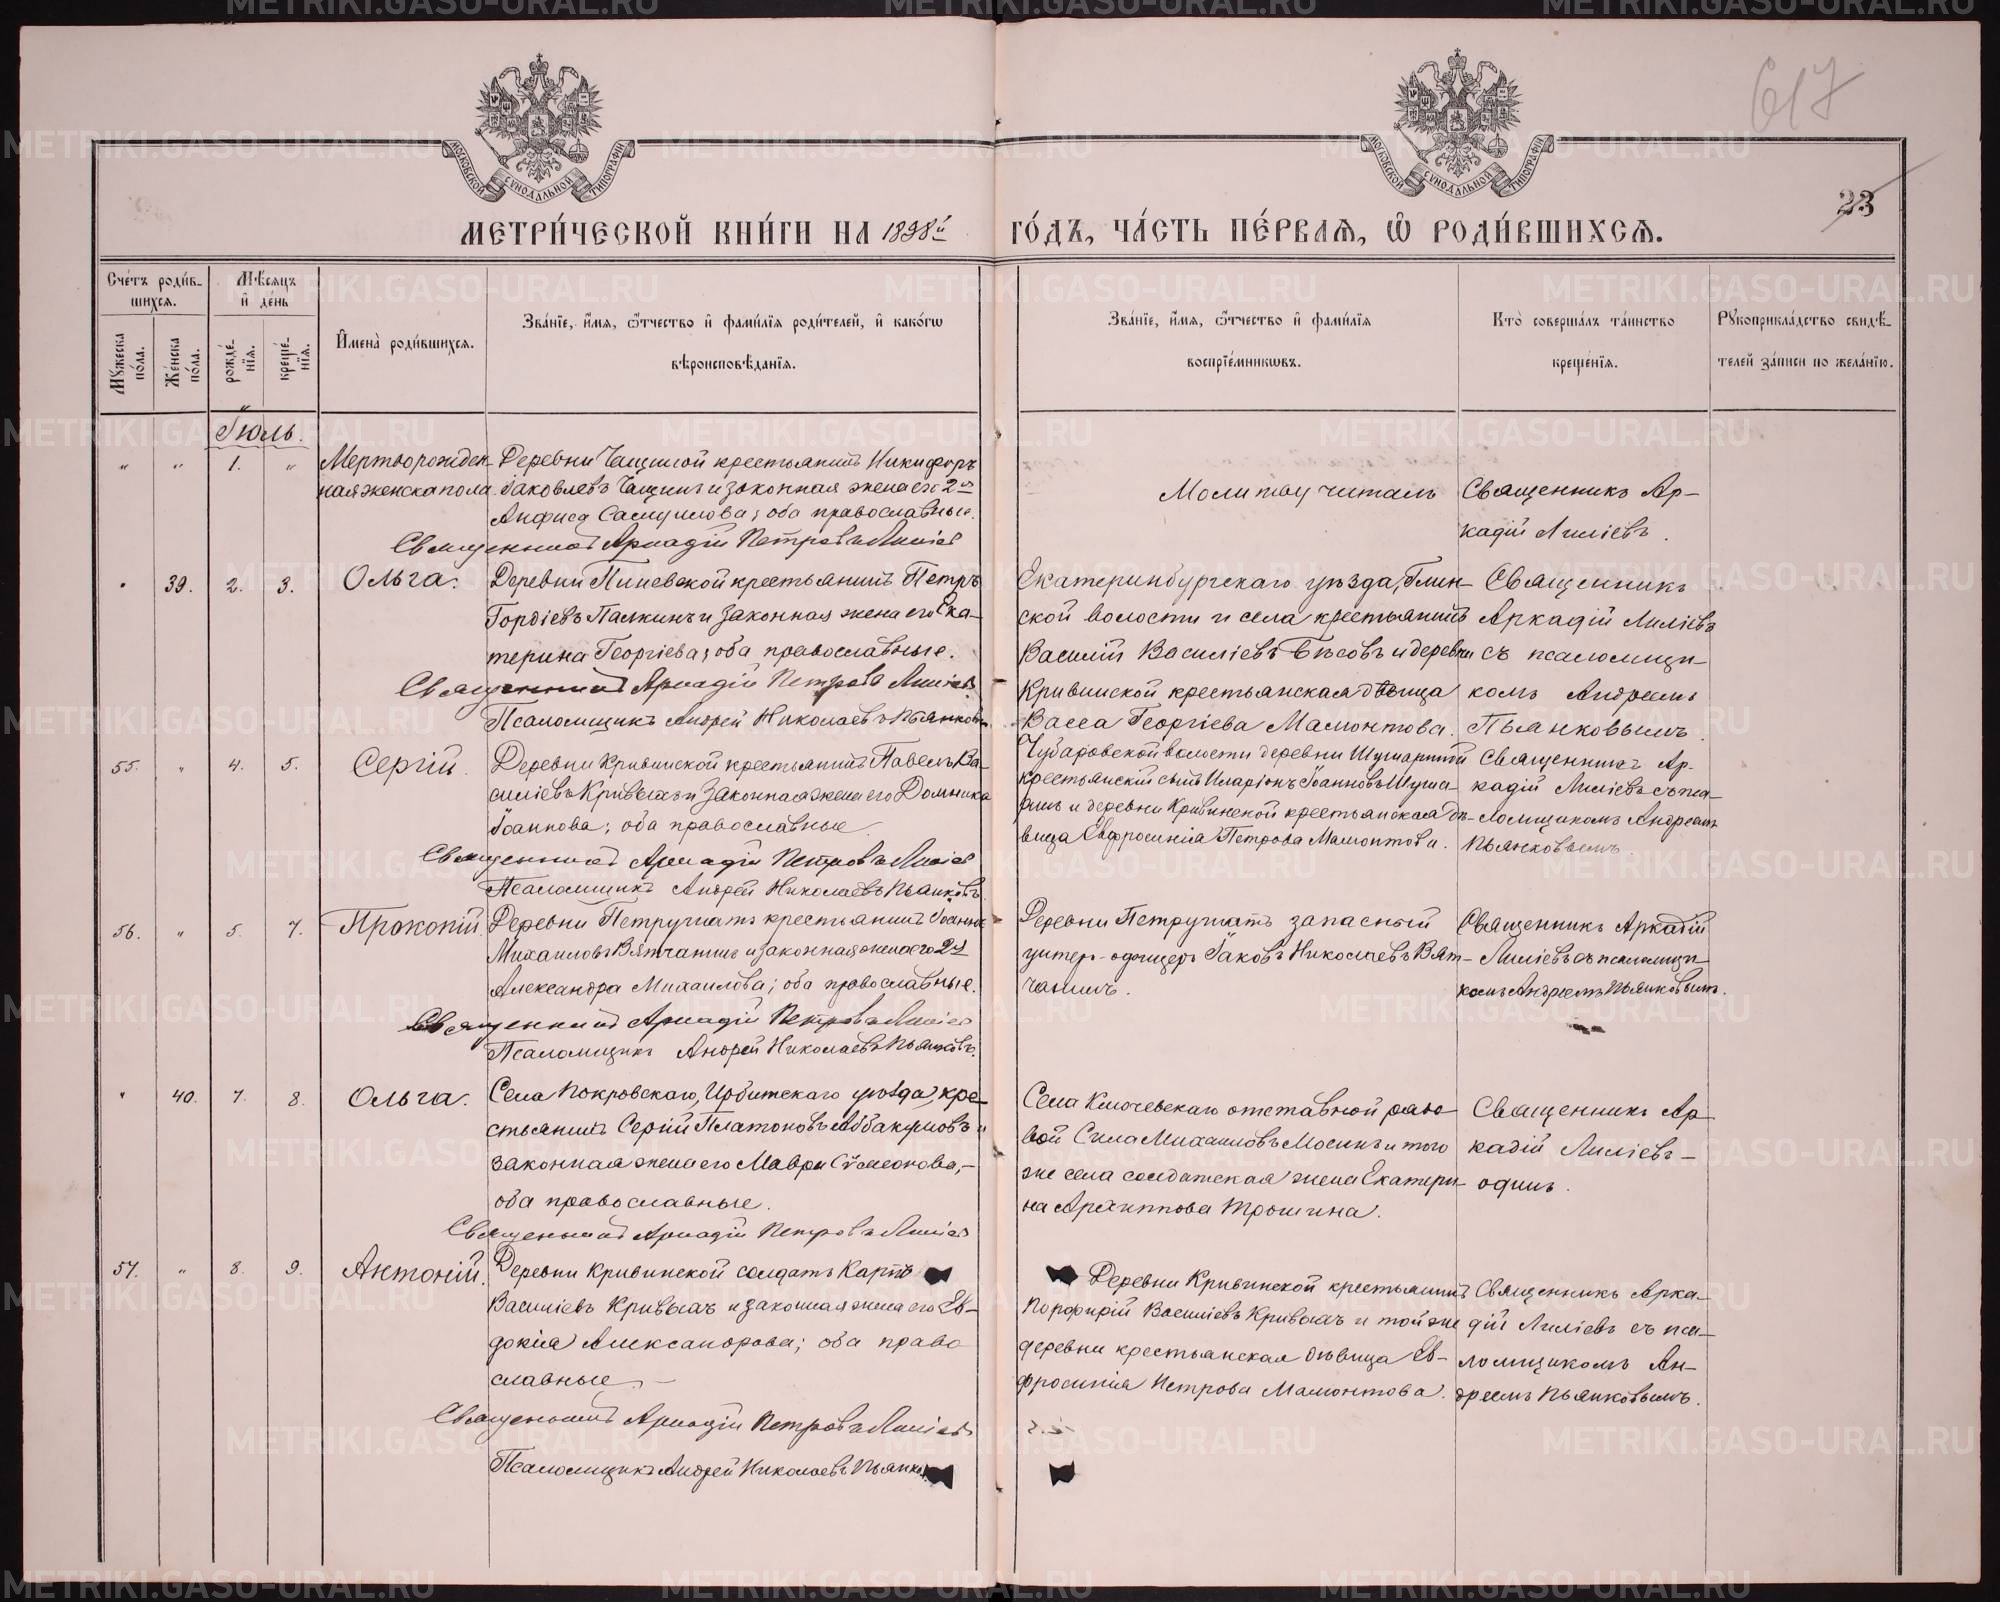 617
МОСКОВСКОЙ СѴНОДАЛЬНОЙ ТИПОГРАФІИ
МОСКОВСКОЙ СѴНОДАЛЬНОЙ ТИПОГРАФІИ
23
МЕТРИ́ЧЕСКОЙ КНИ́ГИ НА 1898й ГО́ДЪ, ЧА́СТЬ ПЕ́РВАЯ, Ѡ РОДИ́ВШИХСЯ.
Сче́тъ роди́в-
шихся.
Мꙋ́жеска по́ла.
Же́нска по́ла.
Мѣ́сяцъ и̂ де́нь
рожде́-нїя.
креще́-нїя.
И̂мена̀ роди́вшихся.
Зва́нїе, и́мя, ѻ҆́тчество и̂ фами́лїя роди́телей, и̂ како́гѡ
вѣроисповѣ́данїя.
Зва́нїе, и́мя, ѻ҆́тчество и̂ фами́лїя
воспрїе́мникѡвъ.
Кто̀ соверша́лъ та́инство
креще́нїя.
Рꙋкоприкла́дство свидѣ́-
телей за́писи по жела́нїю.
Іюль.
" " 1. "
Мертворожден-
ная женска пола.
Деревни Чащиной крестьянинъ Никифоръ
Іаковлевъ Чащинъ и законная жена его 2я
Анфиса Самуилова; оба православные.
Священникъ Аркадій Петровъ Лиліев
Молитву читалъ
Священникъ Ар-
кадій Лиліевъ.
" 39. 2. 3.
Ольга.
Деревни Пиневской крестьянинъ Петръ
Гордіевъ Палкинъ и законная жена его Ека-
терина Георгіева; оба православные.
Священникъ Аркадій Петровъ Лиліев.
Псаломщикъ Андрей Николаевъ Пьянковъ.
Екатеринбургскаго уѣзда, Глин-
ской волости и села крестьянинъ
Василій Василіевъ Бѣсовъ и деревни
Кривинской крестьянская дѣвица
Васса Георгіева Мамонтова.
Священникъ
Аркадій Лиліевъ
съ псаломщи-
комъ Андреемъ
Пьянковымъ.
55. " 4. 5.
Сергій.
Деревни Кривинской крестьянинъ Павелъ Ва-
силіевъ Кривыхъ и законная жена его Домника
Іоаннова; оба православные.
Священникъ Аркадій Петровъ Лиліев
Псаломщикъ Андрей Николаевъ Пьянковъ.
Чубаровской волости деревни
крестьянскій сынъ Иларіонъ Іоанновъ
и деревни Кривинской крестьянская дѣ-
вица Евфросинія Петрова Мамонтова.
Священникъ Ар-
кадій Лиліевъ съ пса-
ломщикомъ Андреемъ
Пьянковымъ.
56. " 5. 7.
Прокопій.
Деревни Петруниатъ крестьянинъ Іоаннъ
Михаиловъ Вятчанинъ и законная жена его 2я
Александра Михаилова; оба православные.
Священникъ Аркадій Петровъ Лиліев
Псаломщикъ Андрей Николаевъ Пьянковъ.
Деревни Петруниатъ запасный
унтер-офицеръ Іаковъ Николаевъ Вят-
чанинъ.
Священникъ Аркадій
Лиліевъ съ псаломщи-
комъ Андреемъ Пьянковымъ.
" 40. 7. 8.
Ольга.
Села Покровскаго, Ирбитскаго уѣзда, кре-
стьянинъ Сергій Платоновъ Аббакумовъ и
законная жена его Мавра Сѵмеонова,-
оба православные.
Священникъ Аркадій Петровъ Лиліев
Села Ключевскаго отставной рядо-
вой Сила Михаиловъ Мосинъ и того
же села солдатская жена Екатери-
на Архиппова Трошина.
Священникъ Ар-
кадій Лиліевъ-
одинъ.
57. " 8. 9.
Антоній.
Деревни Кривинской солдатъ Карпъ
Василіевъ Кривыхъ и законная жена его Ев-
докія Александрова; оба право
славные.-
Священникъ Аркадій Петровъ Лиліев
Псаломщикъ Андрей Николаевъ Пьянков.
Деревни Кривинской крестьянинъ
Порфирій Василіевъ Кривыхъ и той же
деревни крестьянская дѣвица Ев-
фросинія Петрова Мамонтова.
Священникъ Арка-
дій Лиліевъ съ пса-
ломщикомъ Ан-
дреемъ Пьянковымъ.
METRIKI.GASO-URAL.RU